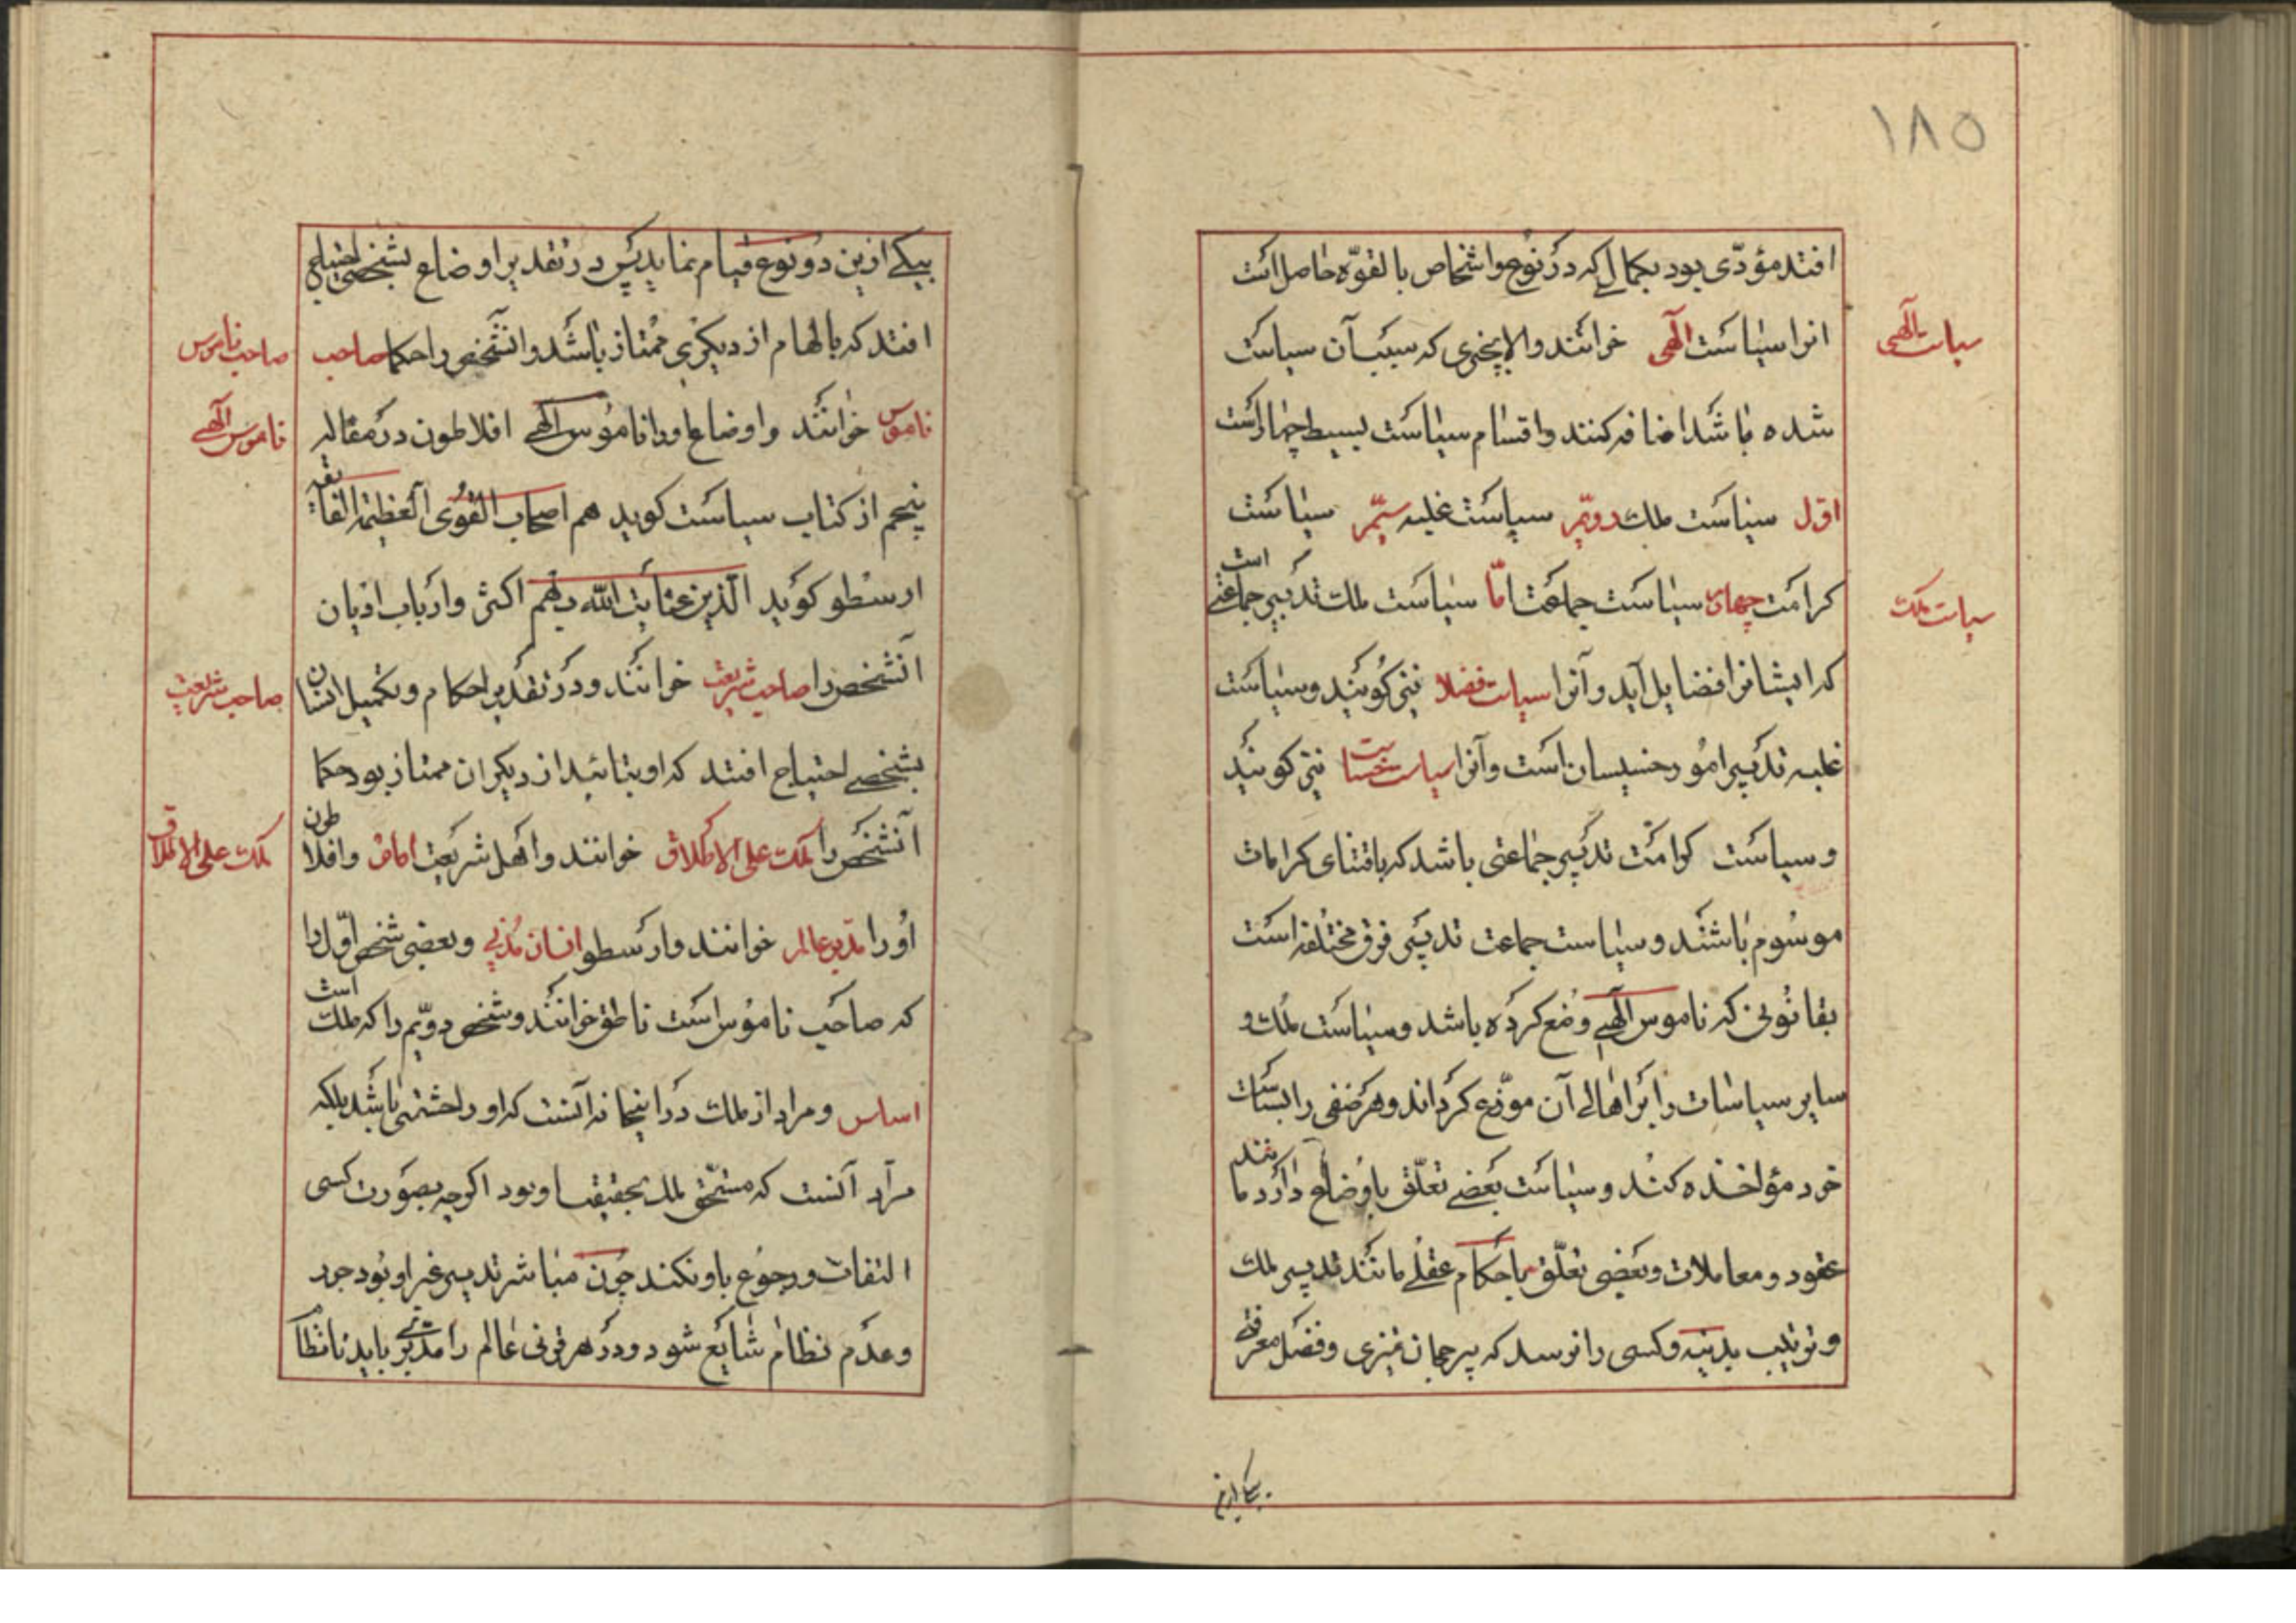 ۱۸۵
افتد مؤدّی بود بکمالی که در نوع و اشخاص بالقوّه حاصل است
سیاست الهی
انرا سیاست الهی خوانند والا بچیزی که سبب آن سیاست
شده باشد اضافه کنند و اقسام سیاست بسیط چهار است
اوّل سیاست ملک دویّم سیاست غلبه سیّم سیاست
کرامت چهارم سیاست جماعت امّا سیاست ملک تدبیر جماعتی است
سیاست ملک
که ایشانرا فضایل آید و آنرا سیاست فضلا نیز کویند و سیاست
غلبه تدبیر امور خسیسان است و آنرا سیاست خساست نیز کویند
و سیاست کرامت تدبیر جماعتی باشد که باقتنای کرامات
موسوم باشند و سیاست جماعت تدبیر فرق مختلفه است
بقانونی که ناموس الهی وضع کرده باشد و سیاست ملک و
سایر سیاسات را بر اهالی آن موزّع کرداند و هر صنفی را بسیاست
خود مؤاخذه کند و سیاست بعضی تعلّق باوضاع دارد مانند
عقود و معاملات و بعضی تعلّق باحکام عقلی مانند تدبیر ملک
و ترتیب مدینه و کسی را نرسد که بی رجحان تمیزی و فضل معرفتی
بیکی ازین
بیکی ازین دو نوع قیام نماید پس در تقدیر اوضاع بشخصی احتیاج
افتد که بالهام از دیکری ممتاز باشد و انشخص را حکما صاحب
صاحب ناموس
ناموس خوانند و اوضاع اورا ناموس الهی افلاطون در مقاله
ناموس الهی
پنجم از کتاب سیاست کوید هم اصحاب القوی العظیمه الفایقه
ارسطو کوید الذین عنایت الله بهم اکثر و ارباب ادیان
انشخص را صاحب شریعت خوانند و در تقدیر احکام و تکمیل انسان
صاحب شریعت
بشخصی احتیاج افتد که او بتائید از دیکران ممتاز بود حکما
آنشخص را ملک علی الاطلاق خوانند و اهل شریعت امام و افلاطون
ملک علی الاطلاق
اورا مدبّر عالم خوانند و ارسطو انسان مدنی و بعضی شخص اوّل را
که صاحب ناموس است ناطق خوانند و شخص دویّم را که ملک است
اساس و مراد از ملک در اینجا نه آنست که او را حشمتی باشد بلکه
مراد آنست که مستحق ملک بحقیقت او بود اکرچه بصورت کسی
التفات و رجوع باو نکند چون مباشر تدبیر غیر او بود جور
و عدم نظام شایع شود و در هر قرنی عالم را مدبّری باید تا نظام